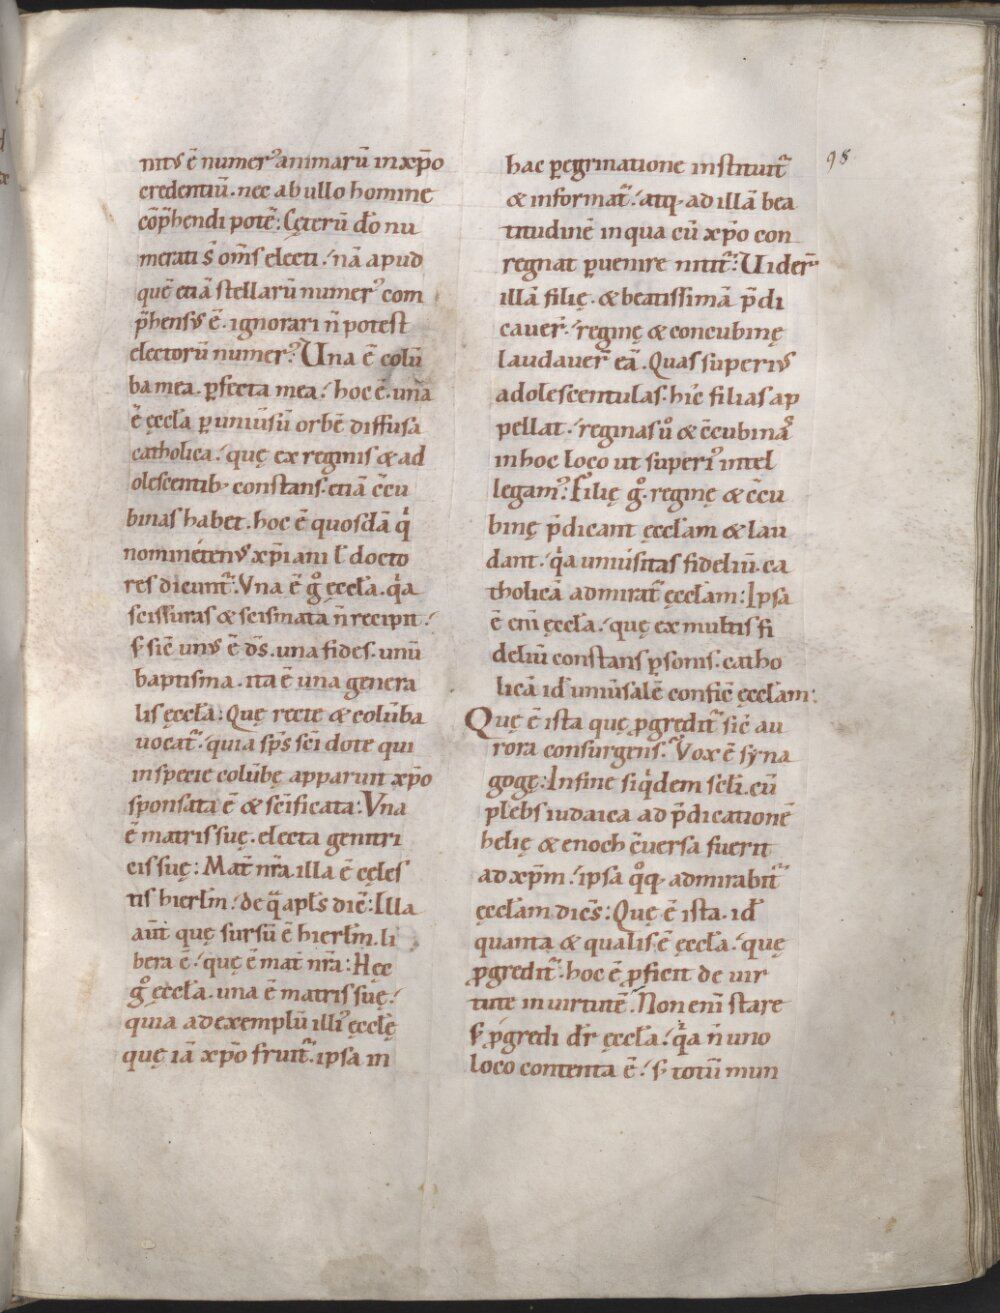 98
nitꝰ ē numerꝰ animarū in xp̄o
credentiū. nec ab ullo homine
cōp̄hendi potē: Cęterū d̄o nu
merati s̄ om̄s electi. nā apud
quē etiā stellarū numerꝰ com
p̄hensꝰ ē. ignorari n̄ potest
electorū numerꝰ. Una ē colū
ba mea. ꝑfecta mea. hoc ē. una
ē ęccła ꝑ uniūsū orbē diffusa
catholica. quę ex reginis & ad
olescentib; constans. etiā c̄cu
binas habet. hoc ē quosdā q̇
nominetenꝰ xp̄iani ł docto
res dicunt᷑. Vna ē g̊ ęccła. q̇a
scissuras & scismata n̄ recipit.
s; sic̄ unꝰ ē d̄s. una fides. unū
baptisma. ita ē una genera
lis ęccła: Quę recte & colūba
uocat᷑. quia sp̄s sc̄i dote qui
in specie colūbę apparuit xp̄o
sponsata ē & sc̄ificata: Vna
ē matris suę. electa genitri
cis suę: Mat̄ nr̄a illa ē cęles
tis hierłm. de qͣ apłs dic̄: Illa
aūt quę sursū ē hierłm. li
bera ē. quę ē mat̄ nr̄a: Hęc
g̊ ęccła. una ē matris suę.
quia ad exemplū illiꝰ ęccłę
quę iā xp̄o fruit᷑. ipsa in
hac peregrinatione instituit᷑
& informat᷑. atq; ad illā bea
titudinē in qua cū xp̄o con
regnat ꝑuenire nitit᷑: Uider̄
illā filię. & beatissimā p̄di
cauer̄. reginę & concubinę
laudauer̄ eā. Quas superiꝰ
adolescentulas. hic̄ filias ap
pellat. reginas ů & c̄cubinas
in hoc loco ut superiꝰ intel
legamꝰ. Filię g̊. reginę & c̄cu
binę p̄dicant ęccłam & lau
dant. q̇a uniūsitas fideliū. ca
tholicā admirat᷑ ęccłam: Ipsa
ē eni̅ ęccła. quę ex multis fi
deliū constans ꝑsonis. catho
licā id uniūsalē confic̄ ęccłam:
Quę ē ista quę ꝓgredit᷑ sic̄ au
rora consurgens. Vox ē syna
gogę: In fine siq̇dem scłi. cū
plebs iudaica ad p̄dicationē
helię & enoch c̄uersa fuerit
ad xp̄m. ipsa q̊q; admirabit᷑
ęccłam dicēs: Quę ē ista. id
quanta & qualis ē ęccła. quę
ꝓgredit᷑. hoc ē ꝓficit de uir
tute in uirtutē. Non eni̅ stare
s; ꝓgredi dr̄ ęccła. q̇a n̄ uno
loco contenta ē. s; totū mun